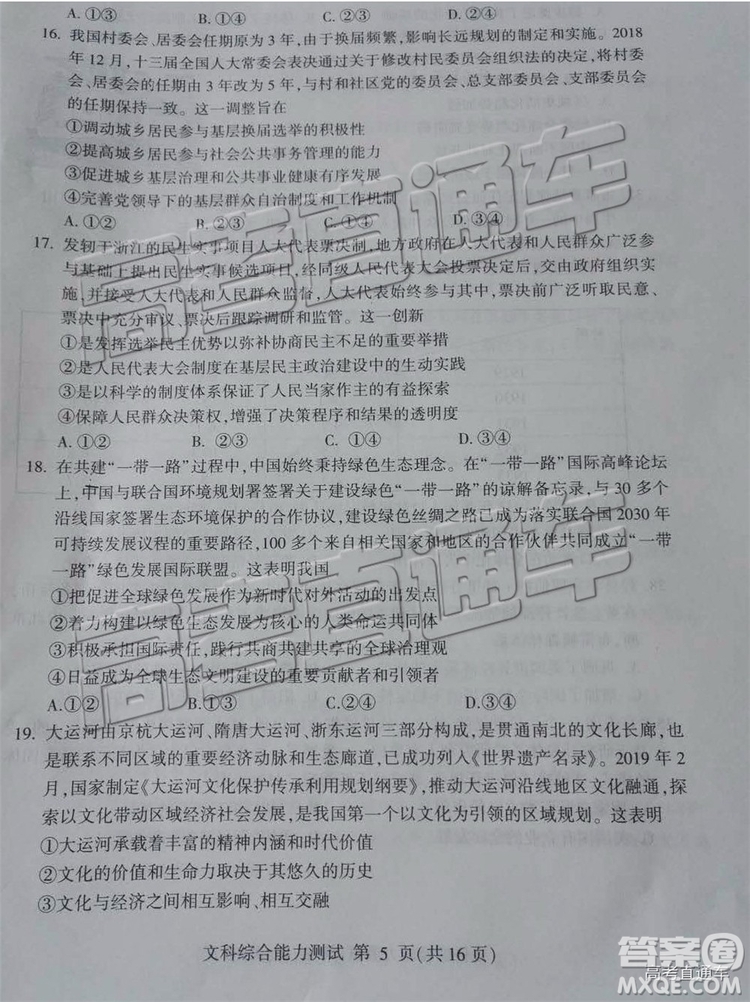 A. ①③ B. ①④ C. ②③ D. ②④
16. 我国村委会、居委会任期原为 3 年，由于换届频繁，影响长远规划的制定和实施。2018
年 12 月，十三届全国人大常委会表决通过关于修改村民委员会组织法的决定，将村委
会、居委会的任期由 3 年改为 5 年，与村和社区党的委员会、总支部委员会、支部委员会
的任期保持一致。这一调整旨在
①调动城乡居民参与基层换届选举的积极性
②提高城乡居民参与社会公共事务管理的能力
③促进城乡基层治理和公共事业健康有序发展
④完善党领导下的基层群众自治制度和工作机制
A. ①② B. ②③ C. ①④ D. ③④
17. 发轫于浙江的民生实事项目人大代表票决制，地方政府在人大代表和人民群众广泛参
与基础上提出民生实事候选项目，经同级人大代表大会投票决定后，交由政府组织实
施，并接受人大代表和人民群众监督，人大代表始终参与其中，票决前广泛听取民意、
票决中充分审议、票决后跟踪调研和监管。这一创新
①是发挥选举民主优势以弥补协商民主不足的重要举措
②是人民代表大会制度在基层民主政治建设中的生动实践
③是以科学的制度体系保证了人民当家作主的有益探索
④保障人民群众决策权，增强了决策程序和结果的透明度
A. ①② B. ②③ C. ①④ D. ③④
18. 在共建“一带一路”过程中，中国始终秉持绿色生态理念。在“一带一路”国际高峰论坛
上，中国与联合国环境规划署签署关于建设绿色“一带一路”的谅解备忘录，与 30 多个
沿线国家签署生态环境保护的合作协议，建设绿色丝绸之路已成为落实联合国 2030 年
可持续发展议程的重要路径，100 多个来自相关国家和地区的合作伙伴共同成立“一带
一路”绿色发展国际联盟。这表明我国
①把促进全球绿色发展作为新时代对外活动的出发点
②着力构建以绿色生态发展为核心的人类命运共同体
③积极承担国际责任，践行共商共建共享的全球治理观
④日益成为全球生态文明建设的重要贡献者和引领者
A. ①② B. ①③ C. ②④ D. ③④
19. 大运河由京杭大运河、隋唐大运河、浙东运河三部分构成，是贯通南北的文化长廊，也
是联系不同区域的重要经济动脉和生态廊道，已成功列人《世界遗产名录》。2019 年 2
月，国家制定《大运河文化保护传承利用规划纲要》，推动大运河沿线地区文化融通，探
索以文化带动区域经济社会发展，是我国第一个以文化为引领的区域规划。这表明
①大运河承载着丰富的精神内涵和时代价值
②文化的价值和生命力取决于其悠久的历史
③文化与经济之间相互影响、相互交融
文科综合能力测试 第 5 页(共 16 页)
高考直通车
高考直通车
答案圈
高考直通车
MXQE.COM